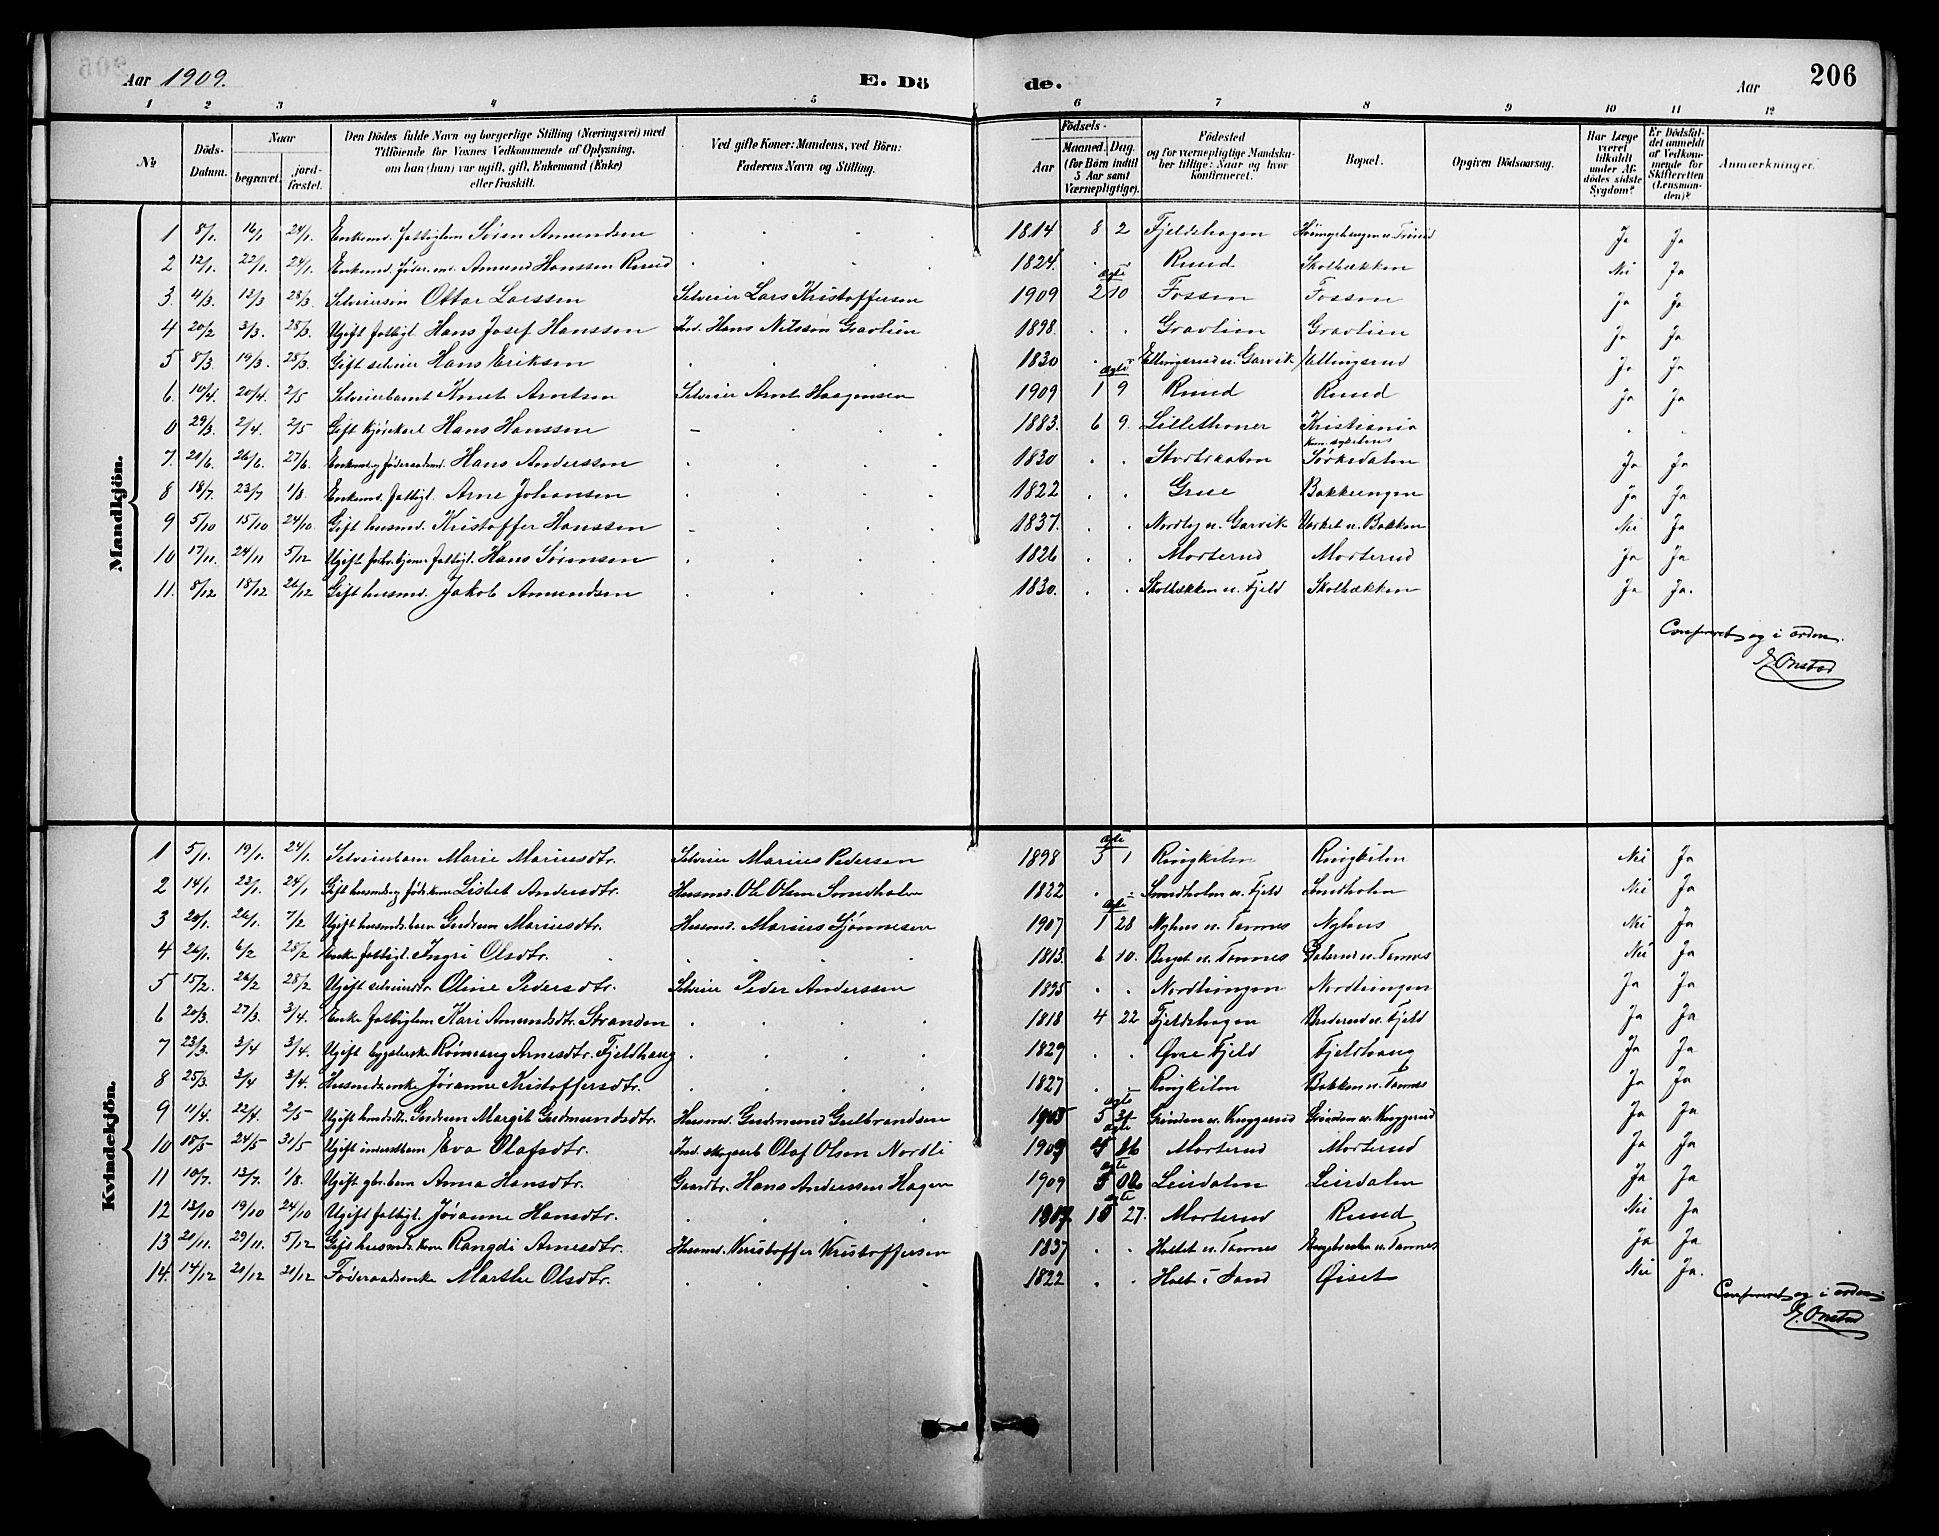 Aar 1909. E. Dö de. Aar 206
1 2 3 4 5 6 7 8 9 10 11 12
№
Döds-Datum.
Naar begravet. jordfæstet.
Den Dödes fulde Navn og borgerlige Stilling (Næringsvei) med Tilföiende for Voxnes Vedkommende af Oplysning, om han (hun) var ugift, gift, Enkemand (Enke) eller fraskilt.
Ved gifte Koner: Mandens, ved Börn: Faderens Navn og Stilling.
Födsels- Aar Maaned. Dag. (for Börn indtil 5 Aar samt Værnepligtige).
Födested og for værnepligtige Mandskaber tillige: Naar og hvor konfirmeret.
Bopæl.
Opgiven Dödsaarsag.
Har Læge været tilkaldt under Afdödes sidste Sygdom?
Er Dödsfaldet anmeldt af Vedkommende for Skifteretten (Lensmanden)?
Anmærkninger.
Mandkjön.
1 8/1 16/1 24/1 Enkemd. fattiglem Søren Amundsen 1814 8 2 Fjeldshagen Ja Ja
2 12/1 22/1 24/1 Enkemd. føder.md. Amund Hanssen Ruud 1824. Ruud Skolbækken Nei Ja
3. 4/3. 13/3 28/3 Selveiersøn Ottar Larssen Selveier Lars Kristoffersen 1909 2 10 Fossen Fossen Ja Ja
4 20/2 3/3. 28/3 Ugift fattigl. Hans Josef Hanssen Ind. Hans Nilsson Gravlien 1898. Gravlien Gravlien Ja Ja
5 8/3 19/3. 28/3 Gift selveier Hans Eriksen 1830 Ellingsrud u. Garvik Ellingsrud Ja Ja
6. 14/4. 20/4. 2/5 Selveierbarnt Knut Arntsen Selveier Arnt Haagensen 1909 1 9 Ruud Ruud Ja Ja
0 29/3. 2/4. 2/5 Gift kjørekarl Hans Hanssen 1883. 6 9. Lillethoner Kristiania kom. sykehus
7. 20/6. 26/6. 27/6. Enkemd. føderaadsmd. Hans Anderssen 1830 Stortbraaten Sørkedalen Ja Ja
8 18/7 23/7 1/8 Enkemd. fattigl. Arne Johansen 1822 Grue Bakkeengen Ja Ja
9 5/10 15/10 24/10. Gift husmd. Kristoffer Hanssen 1837. Nordby u. Garvik u. Bakken Nei Ja
10 17/11. 24/11 5/12 Ugift fattigl. Hans Sørensen 1826 Morterud Morterud Ja Ja
11. 8/12 18/12 26/12 Gift husmd. Jakob Amundsen 1830. Skolbækken u. Fjeld Skolbækken Ja Ja.
Confereret og i orden.
E. Onstad
Kvindekjön.
1 5/1. 19/1. 24/1. Selveierbarn Marie Mariusdtr. Selveier Marius Pedersen 1898 5 1 Ringkilen Ringkilen Nei Ja
2 14/1 23/1 24/1 Gift husmds.og føds.kone Lisbet Andersdtr. Husmd. Ole Olsen Svendholm 1822 Svendholm u. Fjeld Svendholm Nei Ja
3 20/1. 26/1. 7/2 Ugift husmds.barn Gudrun Mariusdtr. Husmd. Marius Tjønnesen 1907 1 28 Nyhus u. Tannes Nyhus Nei Ja
4 26/1. 6/2 28/2 Enke fattigl. Ingri Olsdtr. 1813. 6 10. Berget u. Tannes u. Tannes Nei Ja
5 15/2. 26/2 28/2 Ugift selveierdtr. Oline Pedersdtr. Selveier Peder Anderssen 1895 Nordlingen Nordlingen Ja Ja
6 20/3. 27/3. 3/4. Enke fattiglem Kari Amundsdtr. Stranden 1818 4 22 Fjeldshagen Brederud u. Fjeld Ja Ja
7 23/3. 3/4 3/4. Ugift bygslerske Rønnaug Arnesdtr. Fjeldhaug 1829 Øvre Fjeld Fjeldhaug Ja Ja
8 25/3. 3/4 3/4. Husmdsenke Jøranne Kristoffersdtr. 1827 Ringkilen Bakken u. Tannes Ja Ja
9 11/4. 22/4. 2/5 Ugift husmdsdtr. Gudrun Margit Gudmundsdtr. Husmd. Gudmund Gulbrandsen 1905 5 Grinden u. Knyggerud Grinden u. Knyggerud Ja Ja
10 18/5 24/5 31/5 Ugift inderstbarn Eva Olafsdtr. Ind. skogsarb. Olaf Olson Nordli 1909 Morterud Morterud Ja Ja
11 10/7. 13/7. 1/8. Ugift gbr.barn Anna Hansdtr. Gaardbr. Hans Anderssen Hagen 1909 5 Leirdalen Leirdalen Ja Ja
12 13/10 19/10 24/10 Ugift fattigl. Jøranne Hansdtr. 27. Morterud Ruud Nei Ja
13 20/11. 29/11. 5/12 Gift husmds.kone Rangdi Arnesdtr. Husmd. Kristoffer Kristoffersen 1837 Holtet u. Tannes u. Tannes Ja Ja
14. 14/12 20/12 21/12 Føderaadsenke Marthe Olsdtr. 1822 Holt i Sand Øiset Nei Ja.
Confereret og i orden.
E. Onstad